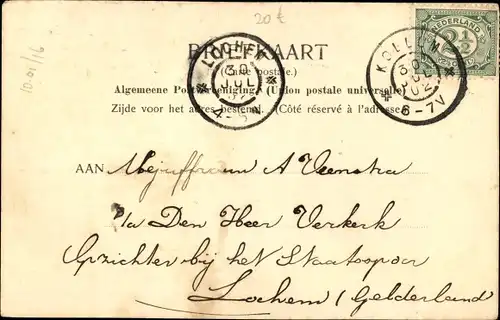 20 t
10-01/16
NEDERLAND
2½
BRIEFKAART
(Carte postale.)
LOCHEM
30
JUL
KOLLUM
30 JUL
02
6-7V
Algemeene Postvereeniging. (Union postale universelle)
Zijde voor het adres bestemd. (Côté réservé à l'adresse.)
AAN Mejuffrouw A Veenstra
p/a Den Heer Verkerk
Opzichter bij het Staatsspoor
Lochem (Gelderland